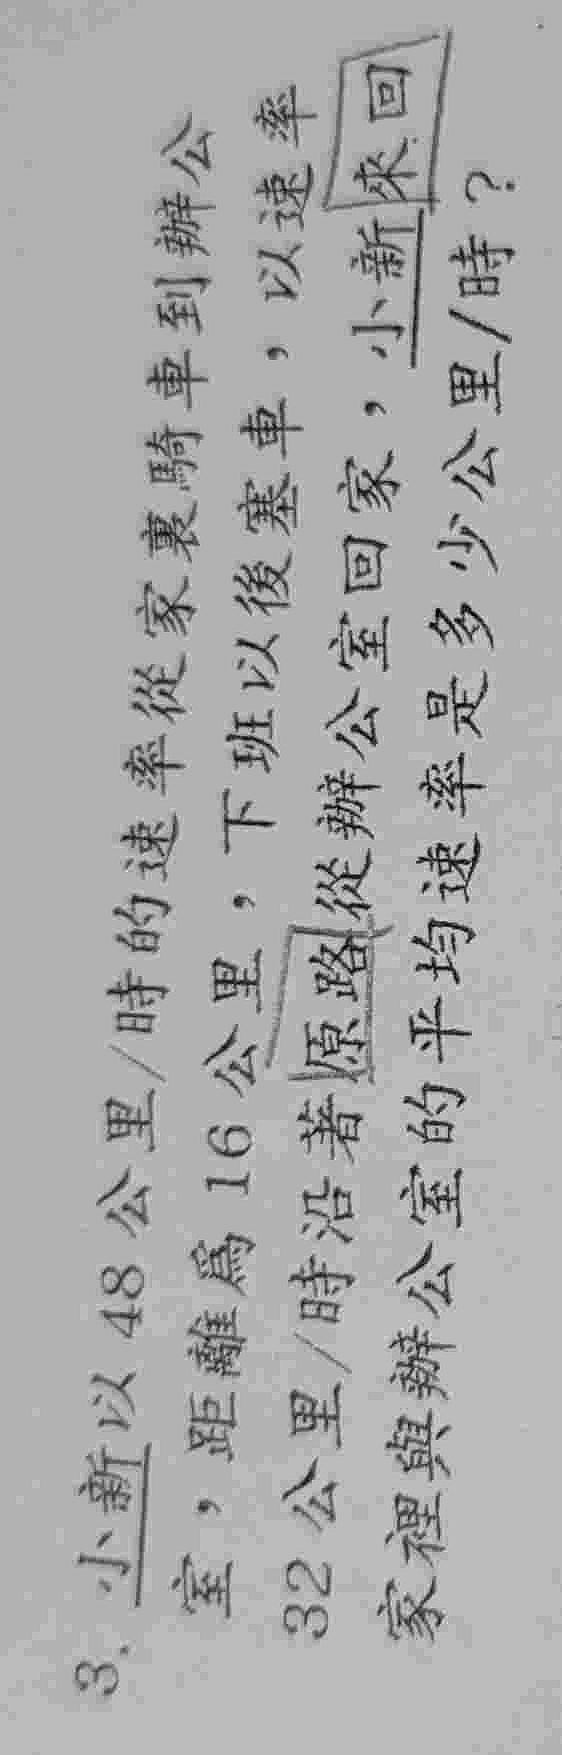 3. 小新以 48 公里/時的速率從家裏騎車到辦公
室，距離爲 16 公里，下班以後塞車，以速率
32 公里/時沿著原路從辦公室回家，小新來回
家裡與辦公室的平均速率是多少公里/時？